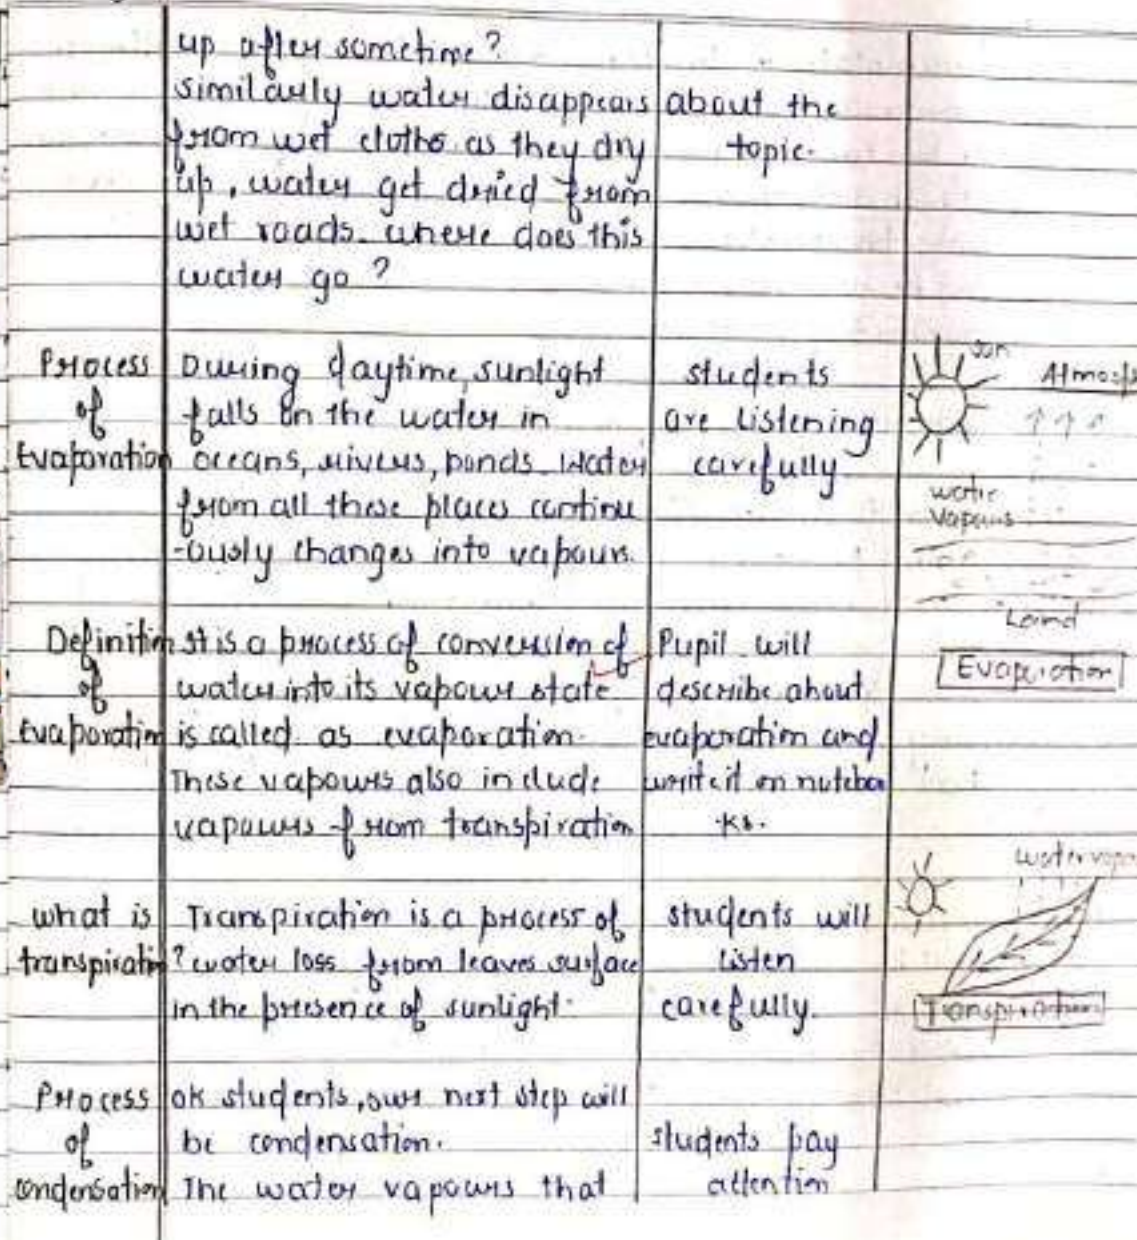 up after sometime?
similarly water disappears
from wet cloths as they dry
up, water get dried from
wet roads. where does this
water go?
about the
topic.
Process
of
Evaporation
During daytime, sunlight
falls on the water in
oceans, rivers, ponds. Water
from all these places continu
-ously changes into vapours.
students
are listening
carefully
Sun
Atmosp
water
Vapours
Land
Evaporation
Definition
of
Evaporation
It is a process of conversion of
water into its vapour state
is called as evaporation.
These vapours also include
vapours from transpiration
Pupil will
describe about
evaporation and
write it on noteboo
-ks.
what is
transpiration?
Transpiration is a process of
water loss from leaves surface
in the presence of sunlight.
students will
listen
carefully.
water vapo
Transpiration
Process
of
condensation
ok students, our next step will
be condensation.
The water vapours that
students pay
attention